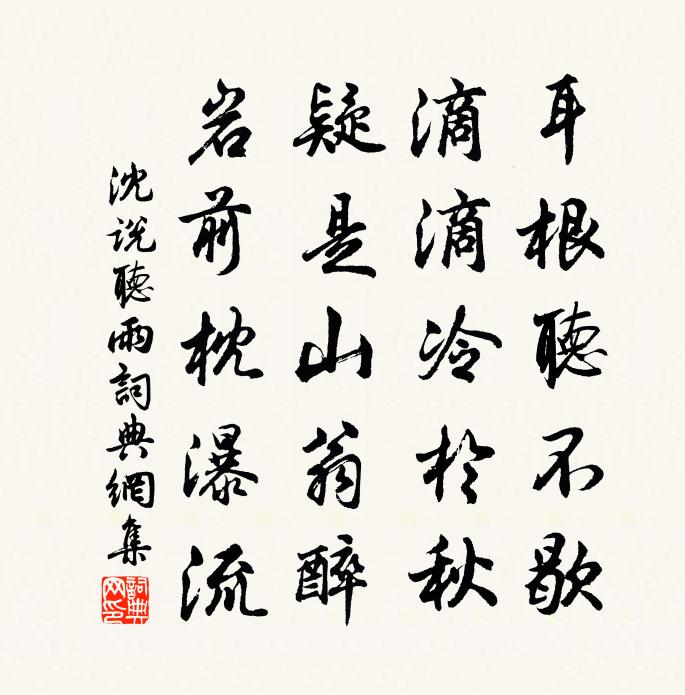 耳根聽不歇
滴滴冷於秋
疑是山翁醉
岩前枕瀑流
沈说聽雨詞典網集
詞典网印